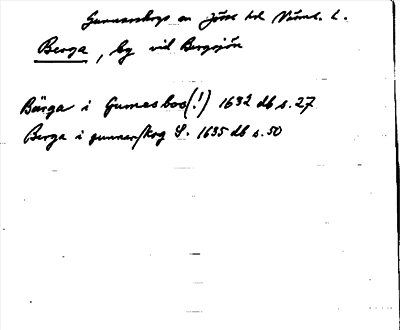 Gunnarskogs sn Jösse hd Värml. l.
Berga, by vid Bergsjön
Bärga i Gumesboo(!) 1632 db s. 27
Berga i gunnerskog S. 1635 db s. 50